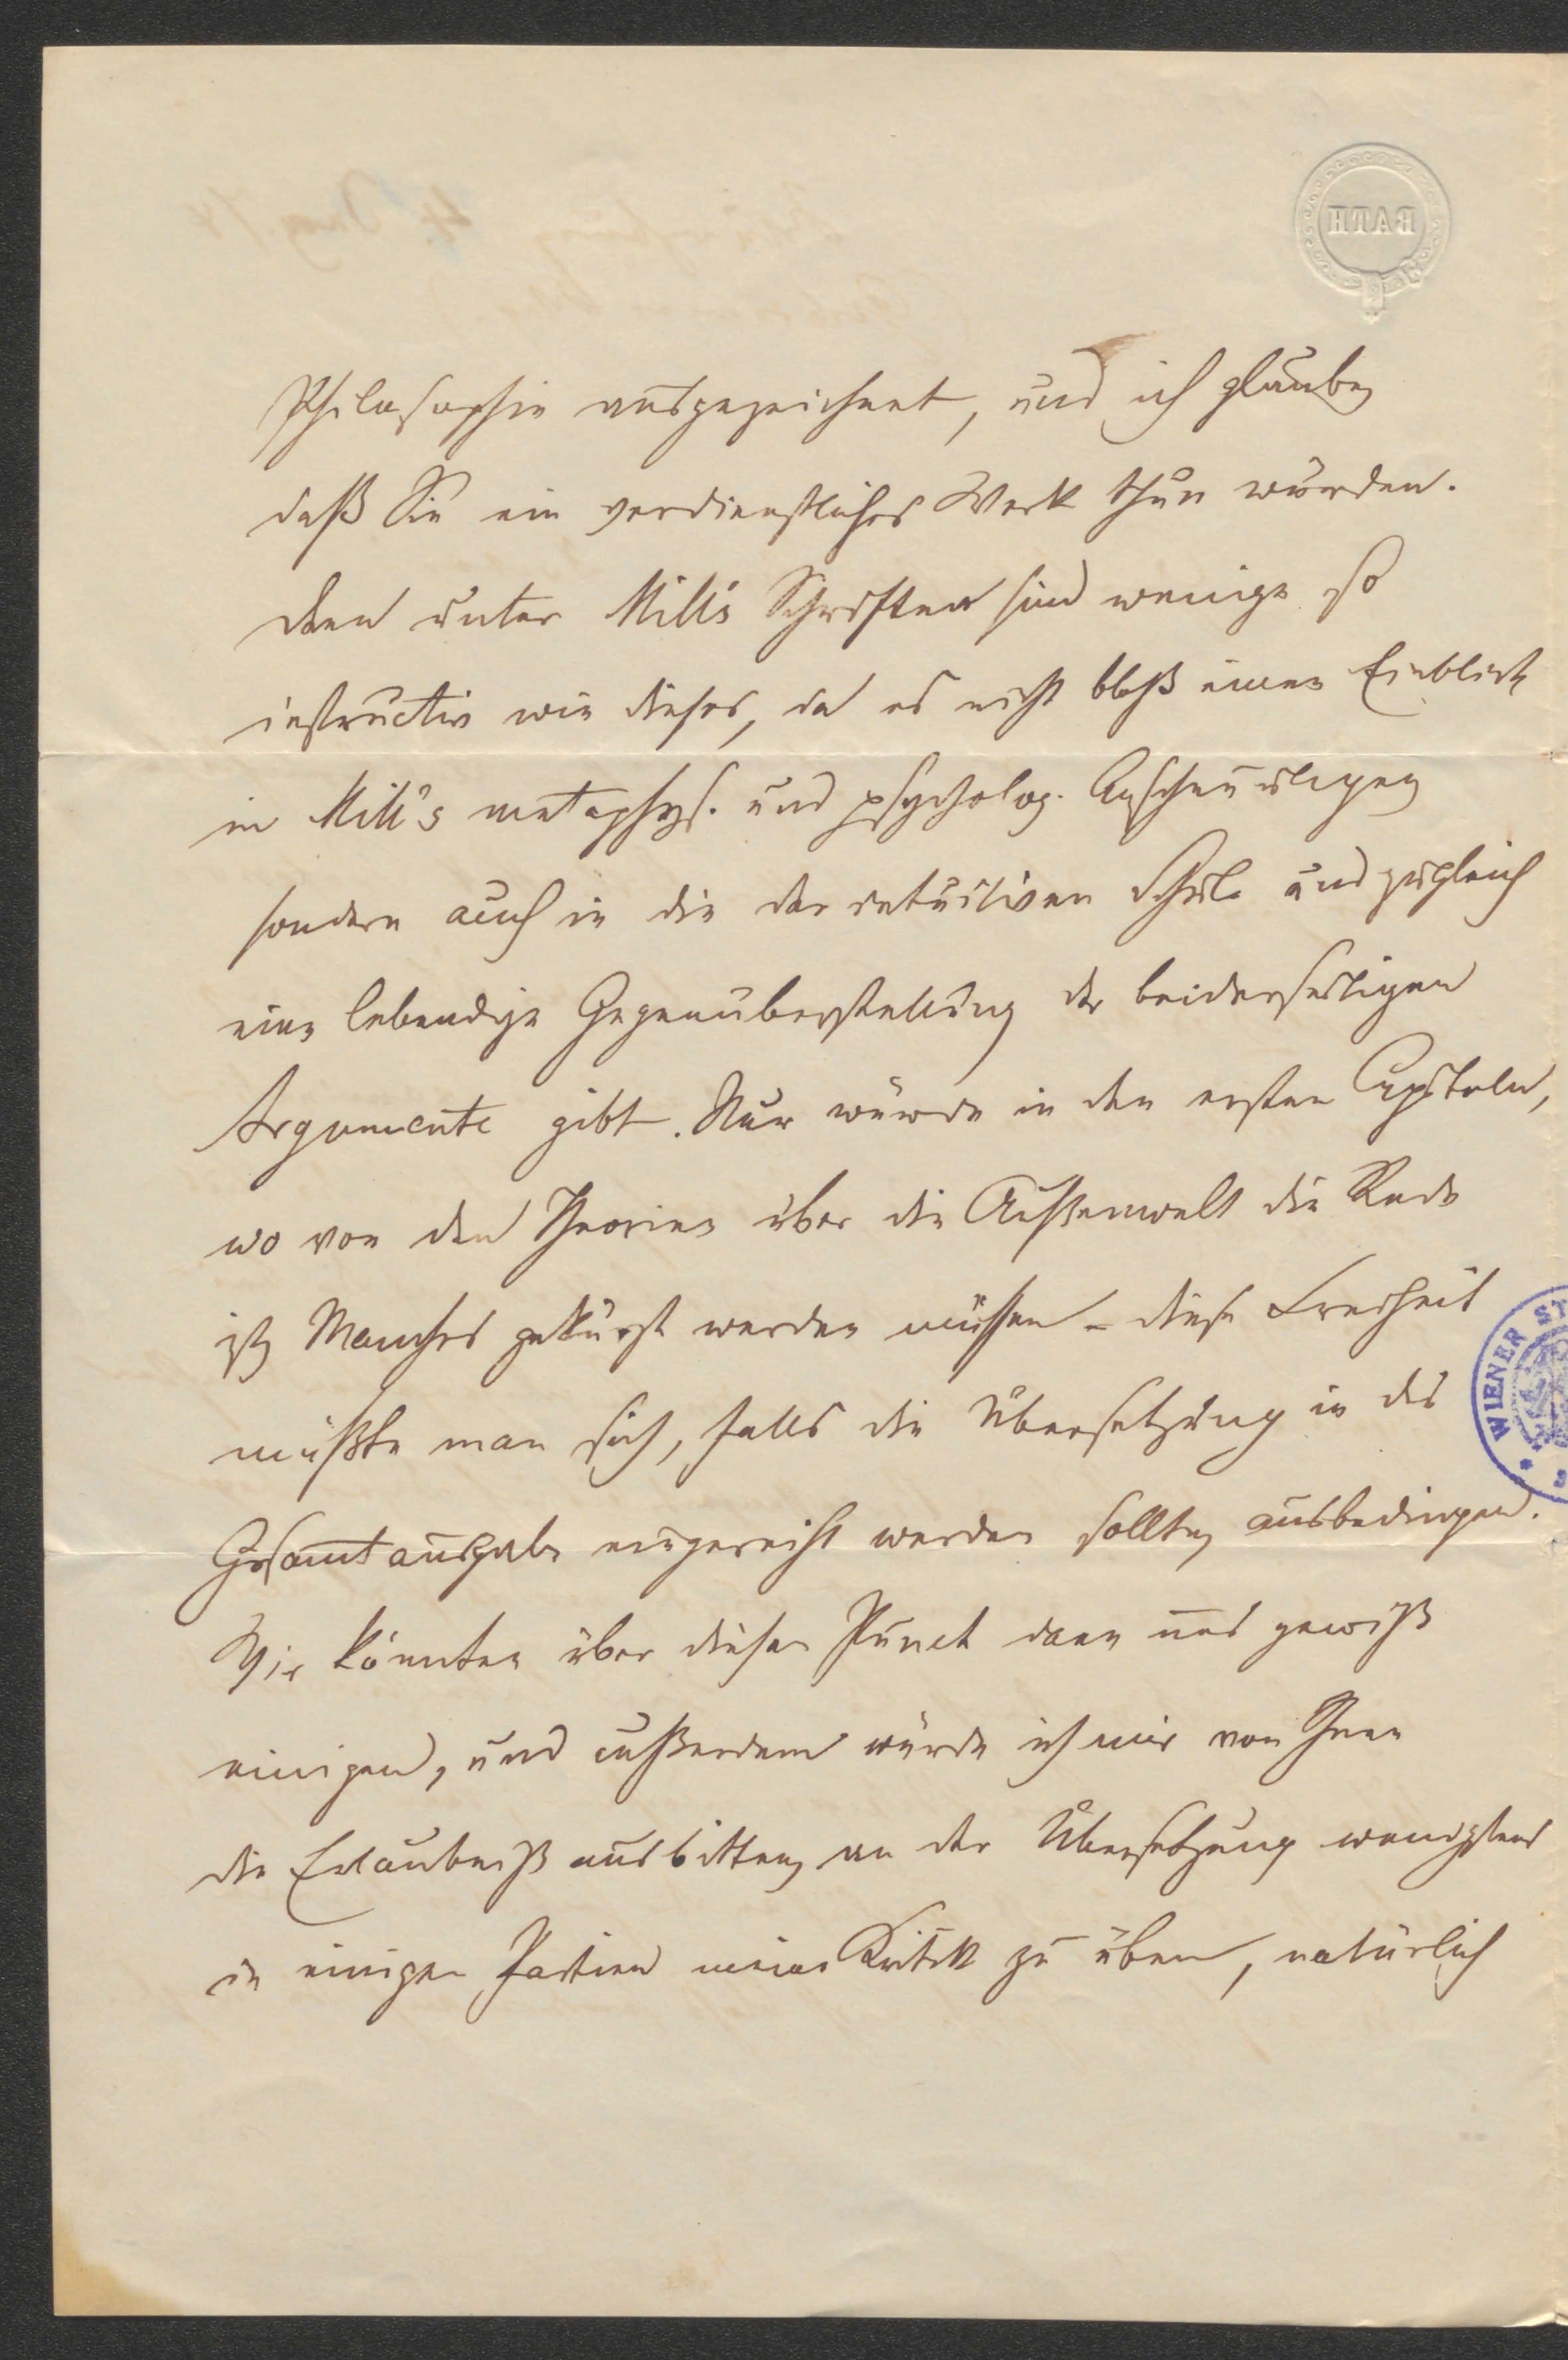 Philosophie ausgezeichnet, und ich glaube,
daß Sie ein verdienstliches Werk thun würden.
Denn unter Mill's Schriften sind wenige so
instructiv wie dieses, da es nicht bloß einen Einblick
in Mill's metaphys. und psycholog. Anschauungen
sondern auch in die der intuitiven Schule und zugleich
eine lebendige Gegenüberstellung der beiderseitigen
Argumente gibt. Nur würde in den ersten Capiteln,
wo von den Theorien über die Außenwelt die Rede
ist, Manches gekürzt werden müssen – diese Freiheit
müßte man sich, falls die Übersetzung in die
Gesamtausgabe eingereiht werden sollte, ausbedingen.
Wir könnten über diesen Punct dann uns gewiß
einigen, und außerdem würde ich mir von Ihnen
die Erlaubniß ausbitten, an der Übersetzung wenigstens
in einigen Partien meine Kritik zu üben, natürlich
BATH
WIENER ST